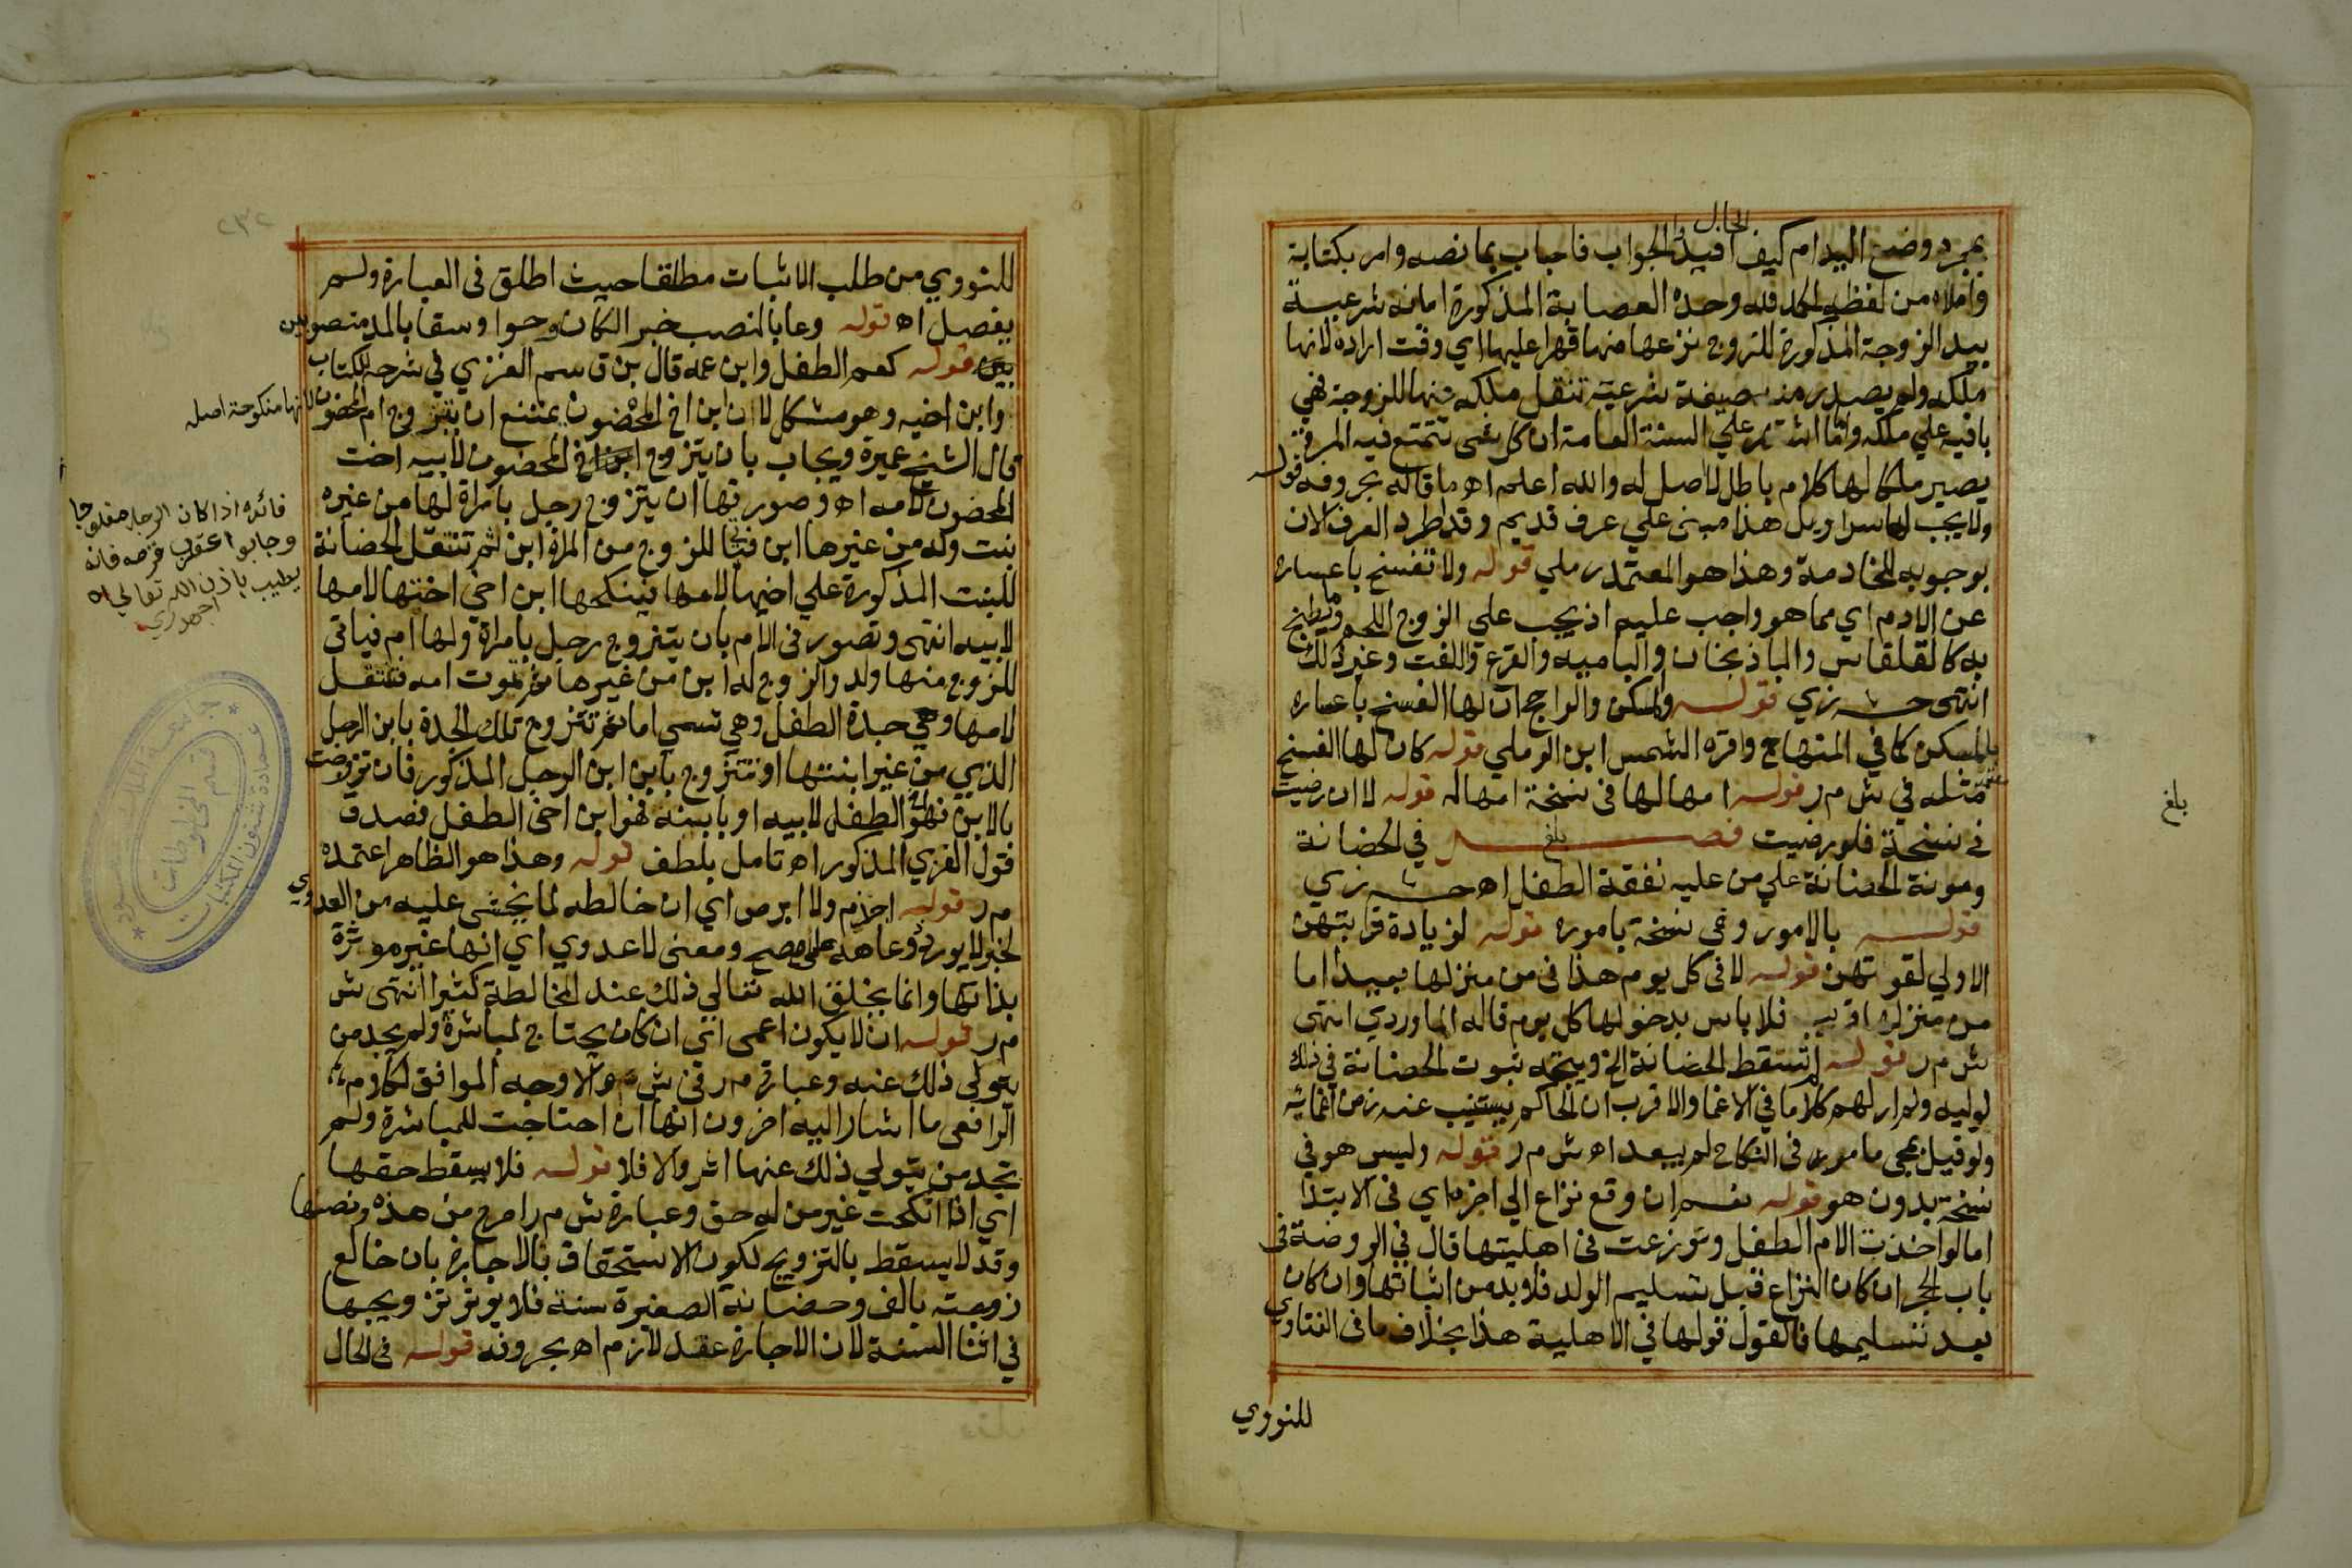 بمجرد وضع اليد ام كيف الحال افيدوا الجواب فاجاب بما نصه وامر بكتابة
واملاه من لفظه الحمد لله وحده العصابة المذكورة امانة شرعية
بيد الزوجة المذكورة للزوج نزعها منها قهرا عليها اي وقت اراده لانها
ملكه ولم يصدر منه صيغة شرعية تنقل ملكه عنها للزوجة فهي
باقية علي ملكه واما اشتهر علي السنة العامة ان كل شي تتمتع فيه المراة
يصير ملكا لها كلام باطل لا اصل له والله اعلم اه ما قاله بحروفه قوله
ولا يجب لها سراويل هذا مبنى علي عرف قديم وقد اطرد العرف الان
بوجوبه للخادمة وهذا هو المعتمد رملي قوله ولا تفسخ باعساره
عن الادم اي مما هو واجب عليه اذ يجب علي الزوج اللحم وما يطبخ
به كالقلقاس والباذنجان والباميه والقرع واللفت وغير ذلك
انتهى ح ش زي قوله والمسكن والراجح ان لها الفسخ باعساره
بالمسكن كما في المنهاج واقره الشمس ابن الرملي قوله كان لها الفسخ
مثله في ش م ر قوله امهالها فى نسخة امهاله قوله لا ان رضيت
في نسخة فلو رضيت فصل بلغ في الحضانة
ومونة الحضانة علي من عليه نفقة الطفل اه ح ش زي
قوله بالامور وفي نسخة باموره قوله لزيادة قرابتهن
الاولي لقوتهن قوله لا فى كل يوم هذا فى من منزلها بعيد اما
من منزلها قريب فلا باس بدخولها كل يوم قاله الماوردي انتهى
ش م ر قوله لم تسقط الحضانة الخ ويتجه ثبوت الحضانة في ذلك
لوليه ولم ار لهم كلاما في الاغما والاقرب ان الحاكم يستنيب عنه زمن اغمائه
ولو قيل بمجى ما مر فى النكاح لم يبعد اه ش م ر قوله وليس هو في
نسخة بدون هو قوله نعم ان وقع نزاع الي اخره اي فى الابتدا
اما لو اخذت الام الطفل وتوزعت فى اهليتها قال في الروضة فى
باب الحجر ان كان النزاع قبل تسليم الولد فلا بد من اثباتها وان كان
بعد تسليمها فالقول قولها في الاهلية هذا بخلاف ما فى الفتاوي
للنووي
بلغ
٢٣٢
للنووي من طلب الاثبات مطلقا حيث اطلق فى العبارة ولم
يفصل اه قوله وعا بالنصب خبر الكان وحوا وسقا بالمد منصوبين
قوله كعم الطفل وابن عمه قال بن قاسم الغزي في شرحه للكتاب
وابن اخيه وهو مشكل لان ابن اخ المحضون يمتنع ان يتزوج ام المحضون لانها منكوحة اصله
قال الشيخ عميرة ويجاب بان يتزوج ابن اخ المحضون لابيه اخت
المحضون لامه اه وصورتها ان يتزوج رجل بامراة لها من غيره
بنت وله من غيرها ابن فيجا للزوج من المراة ابن ثم تنتقل الحضانة
للبنت المذكورة علي اخيها لامها فينكحها ابن اخي اختها لامها
لابيه انتهى وتصور فى الام بان يتزوج رجل بامراة ولها ام فياتى
للزوج منها ولد والزوج له ابن من غيرها ثم تموت امه فتنتقل
لامها وهي جدة الطفل وهي تسمي اما ثم تتزوج تلك الجدة بابن الرجل
الذي من غير ابنتها او تتزوج بابن ابن الرجل المذكور فان تزوجت
بالابن فهو اخو الطفل لابيه او بابنه فهو ابن اخى الطفل فصدق
قول الغزي المذكور اه تامل بلطف قوله وهذا هو الظاهر اعتمده
م ر قوله اجذم ولا ابرص اي ان خالطه لما يخشى عليه من العدوي
لخبر لا يورد ذو عاهة على مصح ومعنى لا عدوي اي انها غير موثرة
بذاتها وانما بخلق الله تعالي ذلك عند المخالطة كثيرا انتهى ش
م ر قوله ان لا يكون اعمى اي ان كان يحتاج لمباشرة ولم يجد من
يتولى ذلك عنه وعبارة م ر فى ش والاوجه الموافق لكلام
الرافعى ما اشار اليه اخرون انها ان احتاجت للمباشرة ولم
تجد من يتولي ذلك عنها اثر والا فلا قوله فلا يسقط حقها
اي اذا انكحت غير من له حق وعبارة ش م ر اصرح من هذه ونصها
وقد لا يسقط بالتزويج لكون الاستحقاق بالاجارة بان خالع
زوجته بالف وحضانة الصغيرة سنة فلا يوثر تزويجها
في اثنا السنة لان الاجارة عقد لازم اه بحروفه قوله فى الحال
فائده اذا كان الرجل
وجابوا عقرب قرصه فانه
يطيب باذن الله تعالي اه
اجهوري
جامعة الملك سعود
عمادة شئون المكتبات
قسم المخطوطات